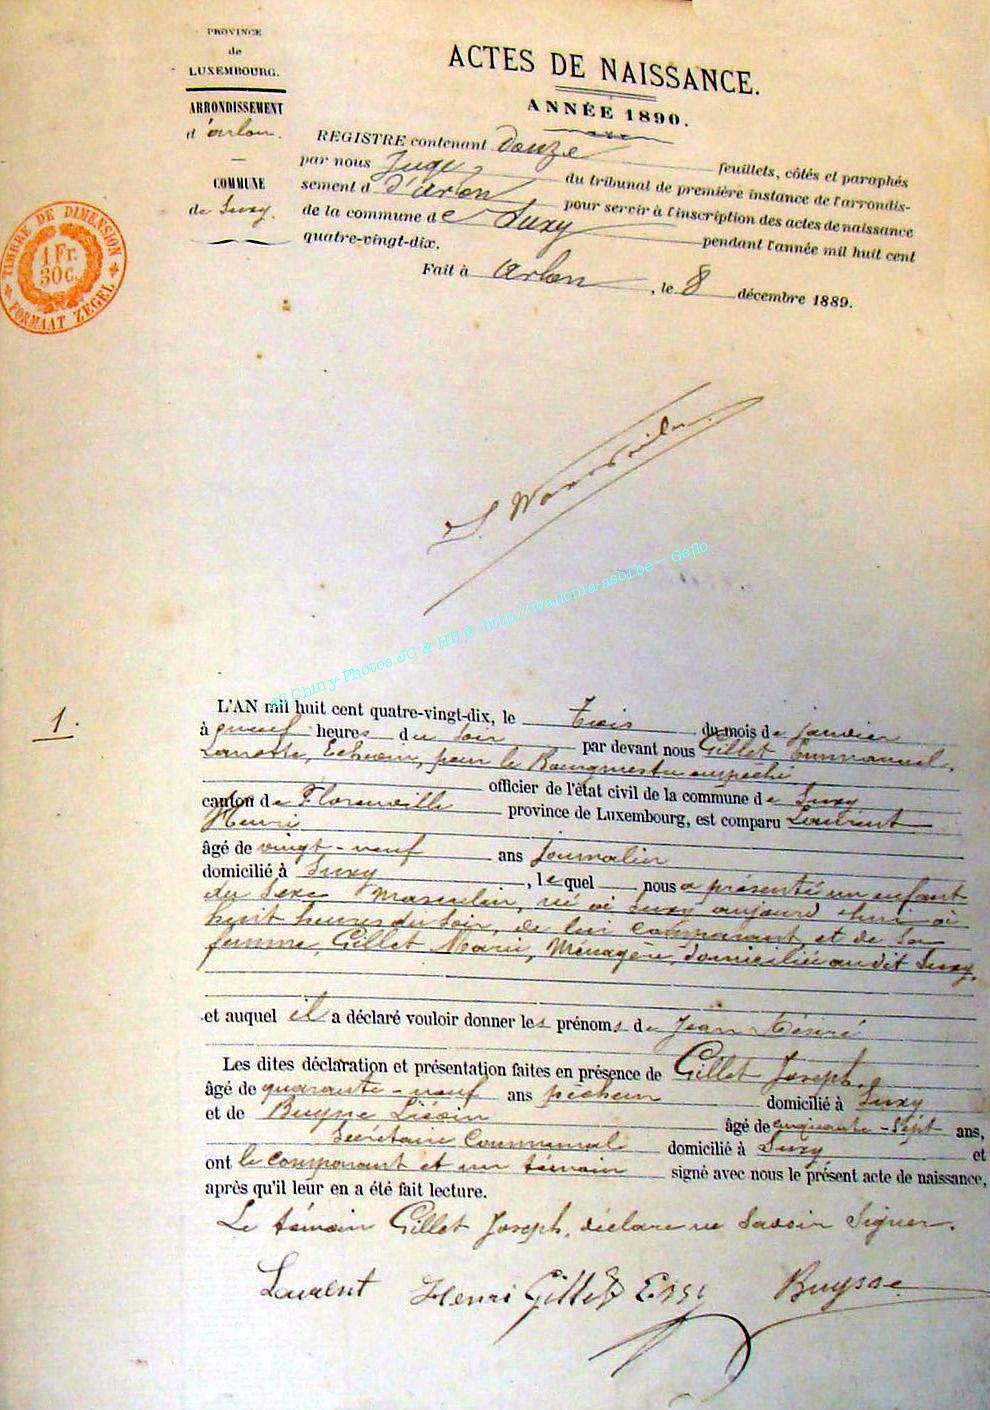 PROVINCE
de
LUXEMBOURG.
ARRONDISSEMENT
d'arlon.
COMMUNE
de Suxy.
TIMBRE DE DIMENSION
1 Fr.
30 C.
FORMAAT ZEGEL
ACTES DE NAISSANCE.
ANNÉE 1890.
REGISTRE contenant douze feuillets, côtés et paraphés
par nous Juge du tribunal de première instance de l'arrondis-
sement d d'arlon pour servir à l'inscription des actes de naissance
de la commune de Suxy pendant l'année mil huit cent
quatre-vingt-dix.
Fait à arlon, le 8 décembre 1889.
JC & HB © http://wallonia-asbl.be - Géflo
1.
L'AN mil huit cent quatre-vingt-dix, le trois du mois de janvier
à neuf heures du soir par devant nous Gillet Emmanuel
Echevin, pour le Bourgmestre empêché
officier de l'état civil de la commune de Suxy
canton de Florenville province de Luxembourg, est comparu Laurent
Henri
âgé de vingt-neuf ans journalier
domicilié à Suxy, lequel nous a présenté un enfant
du sexe Masculin, né à Suxy aujourd'hui à
huit heures du soir, de lui comparant, et de sa
femme, Gillet Marie, Ménagère, domiciliée audit Suxy.
et auquel il a déclaré vouloir donner les prénoms de Jean Désiré
Les dites déclaration et présentation faites en présence de Gillet Joseph,
âgé de quarante-neuf ans pêcheur domicilié à Suxy
et de Buysse âgé de cinquante-sept ans,
Secrétaire Communal domicilié à Suxy et
ont le comparant et un témoin signé avec nous le présent acte de naissance,
après qu'il leur en a été fait lecture.
Le témoin Gillet Joseph, déclare ne savoir signer.
Laurent Henri Gillet Buysse